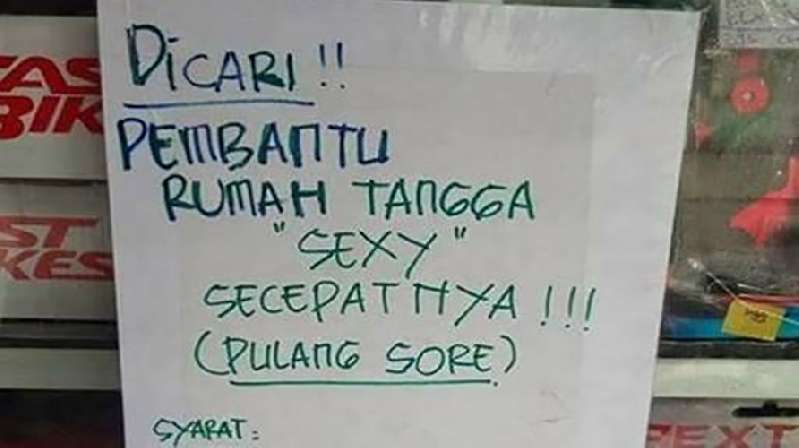 DiCARI !!
PEMBANTU
RUMAH TANGGA
"SEXY"
SECEPATNYA !!!
(PULANG SORE)
SYARAT :
FAST
BIK
ST
KES
EXT